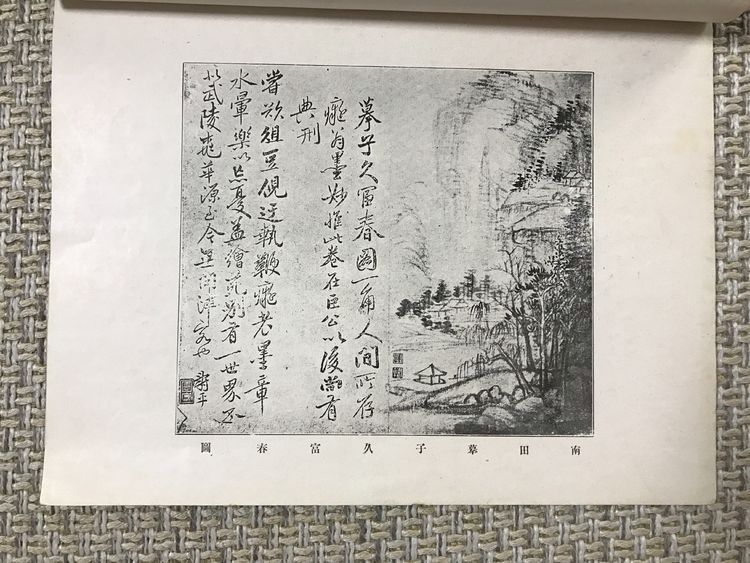 摹子久富春圖一角人間所存
癡翁墨妙惟此卷在公以後尚有
典刑
嘗欲俎豆倪迂執鞭癡老墨章
水暈樂以忘憂蓋繪苑別有一世界不
武陵桃華源也今無
壽平
南田摹子久富春圖